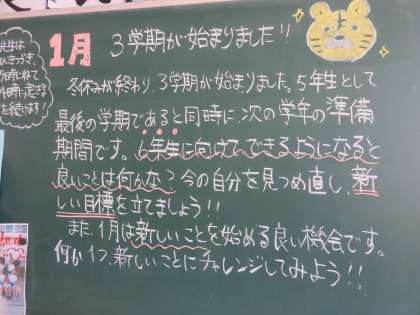 1月
3学期が始まりました!!
冬休みが終わり、3学期が始まりました。5年生として
最後の学期であると同時に、次の学年の準備
期間です。6年生に向けてできるようになると
良いことは何かな?今の自分を見つめ直し、新
しい目標を立てましょう!!
また、1月は新しいことを始める良い機会です。
何か1つ、新しいことにチャレンジしてみよう!!
先生は
ひきつづき
4時に起きる
を続けます!